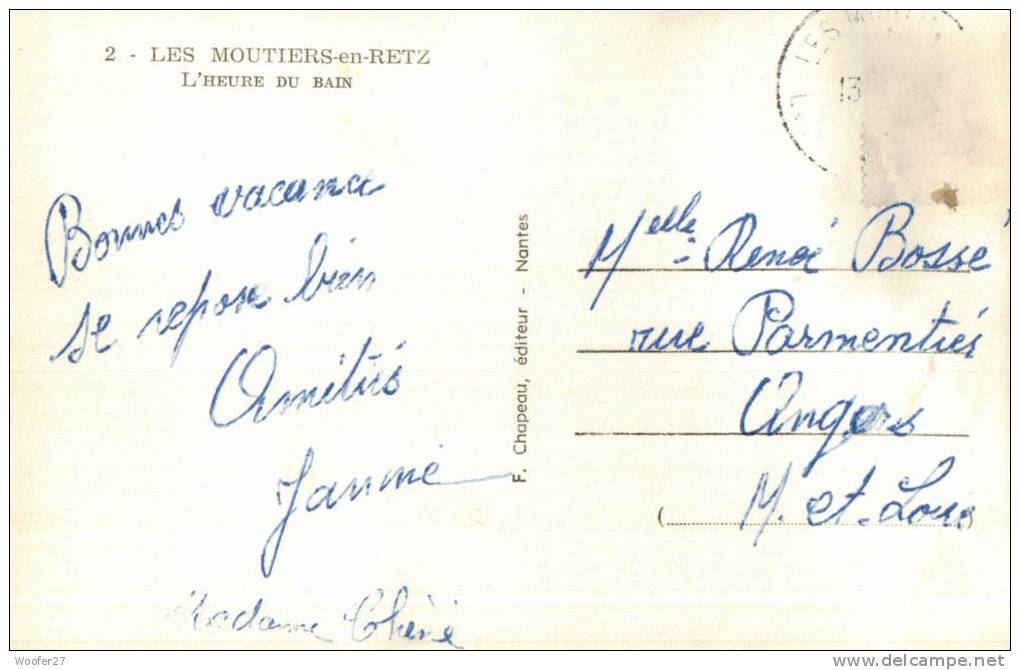 2 - LES MOUTIERS-en-RETZ
L'HEURE DU BAIN
LES MOUTI
13
Bonnes vacance
se repose bien
Amitiés
Jannine
Madame Chéné
F. Chapeau, éditeur - Nantes
Melle Reneé Bossé
rue Parmentiés
Angers
M. et-Loire
Woofer27
www.delcampe.net